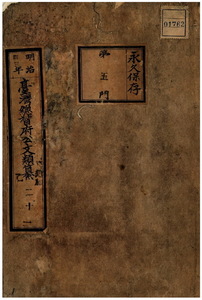 01762
永久保存
第五門
明治
年
臺灣總督府公文類纂
二十一